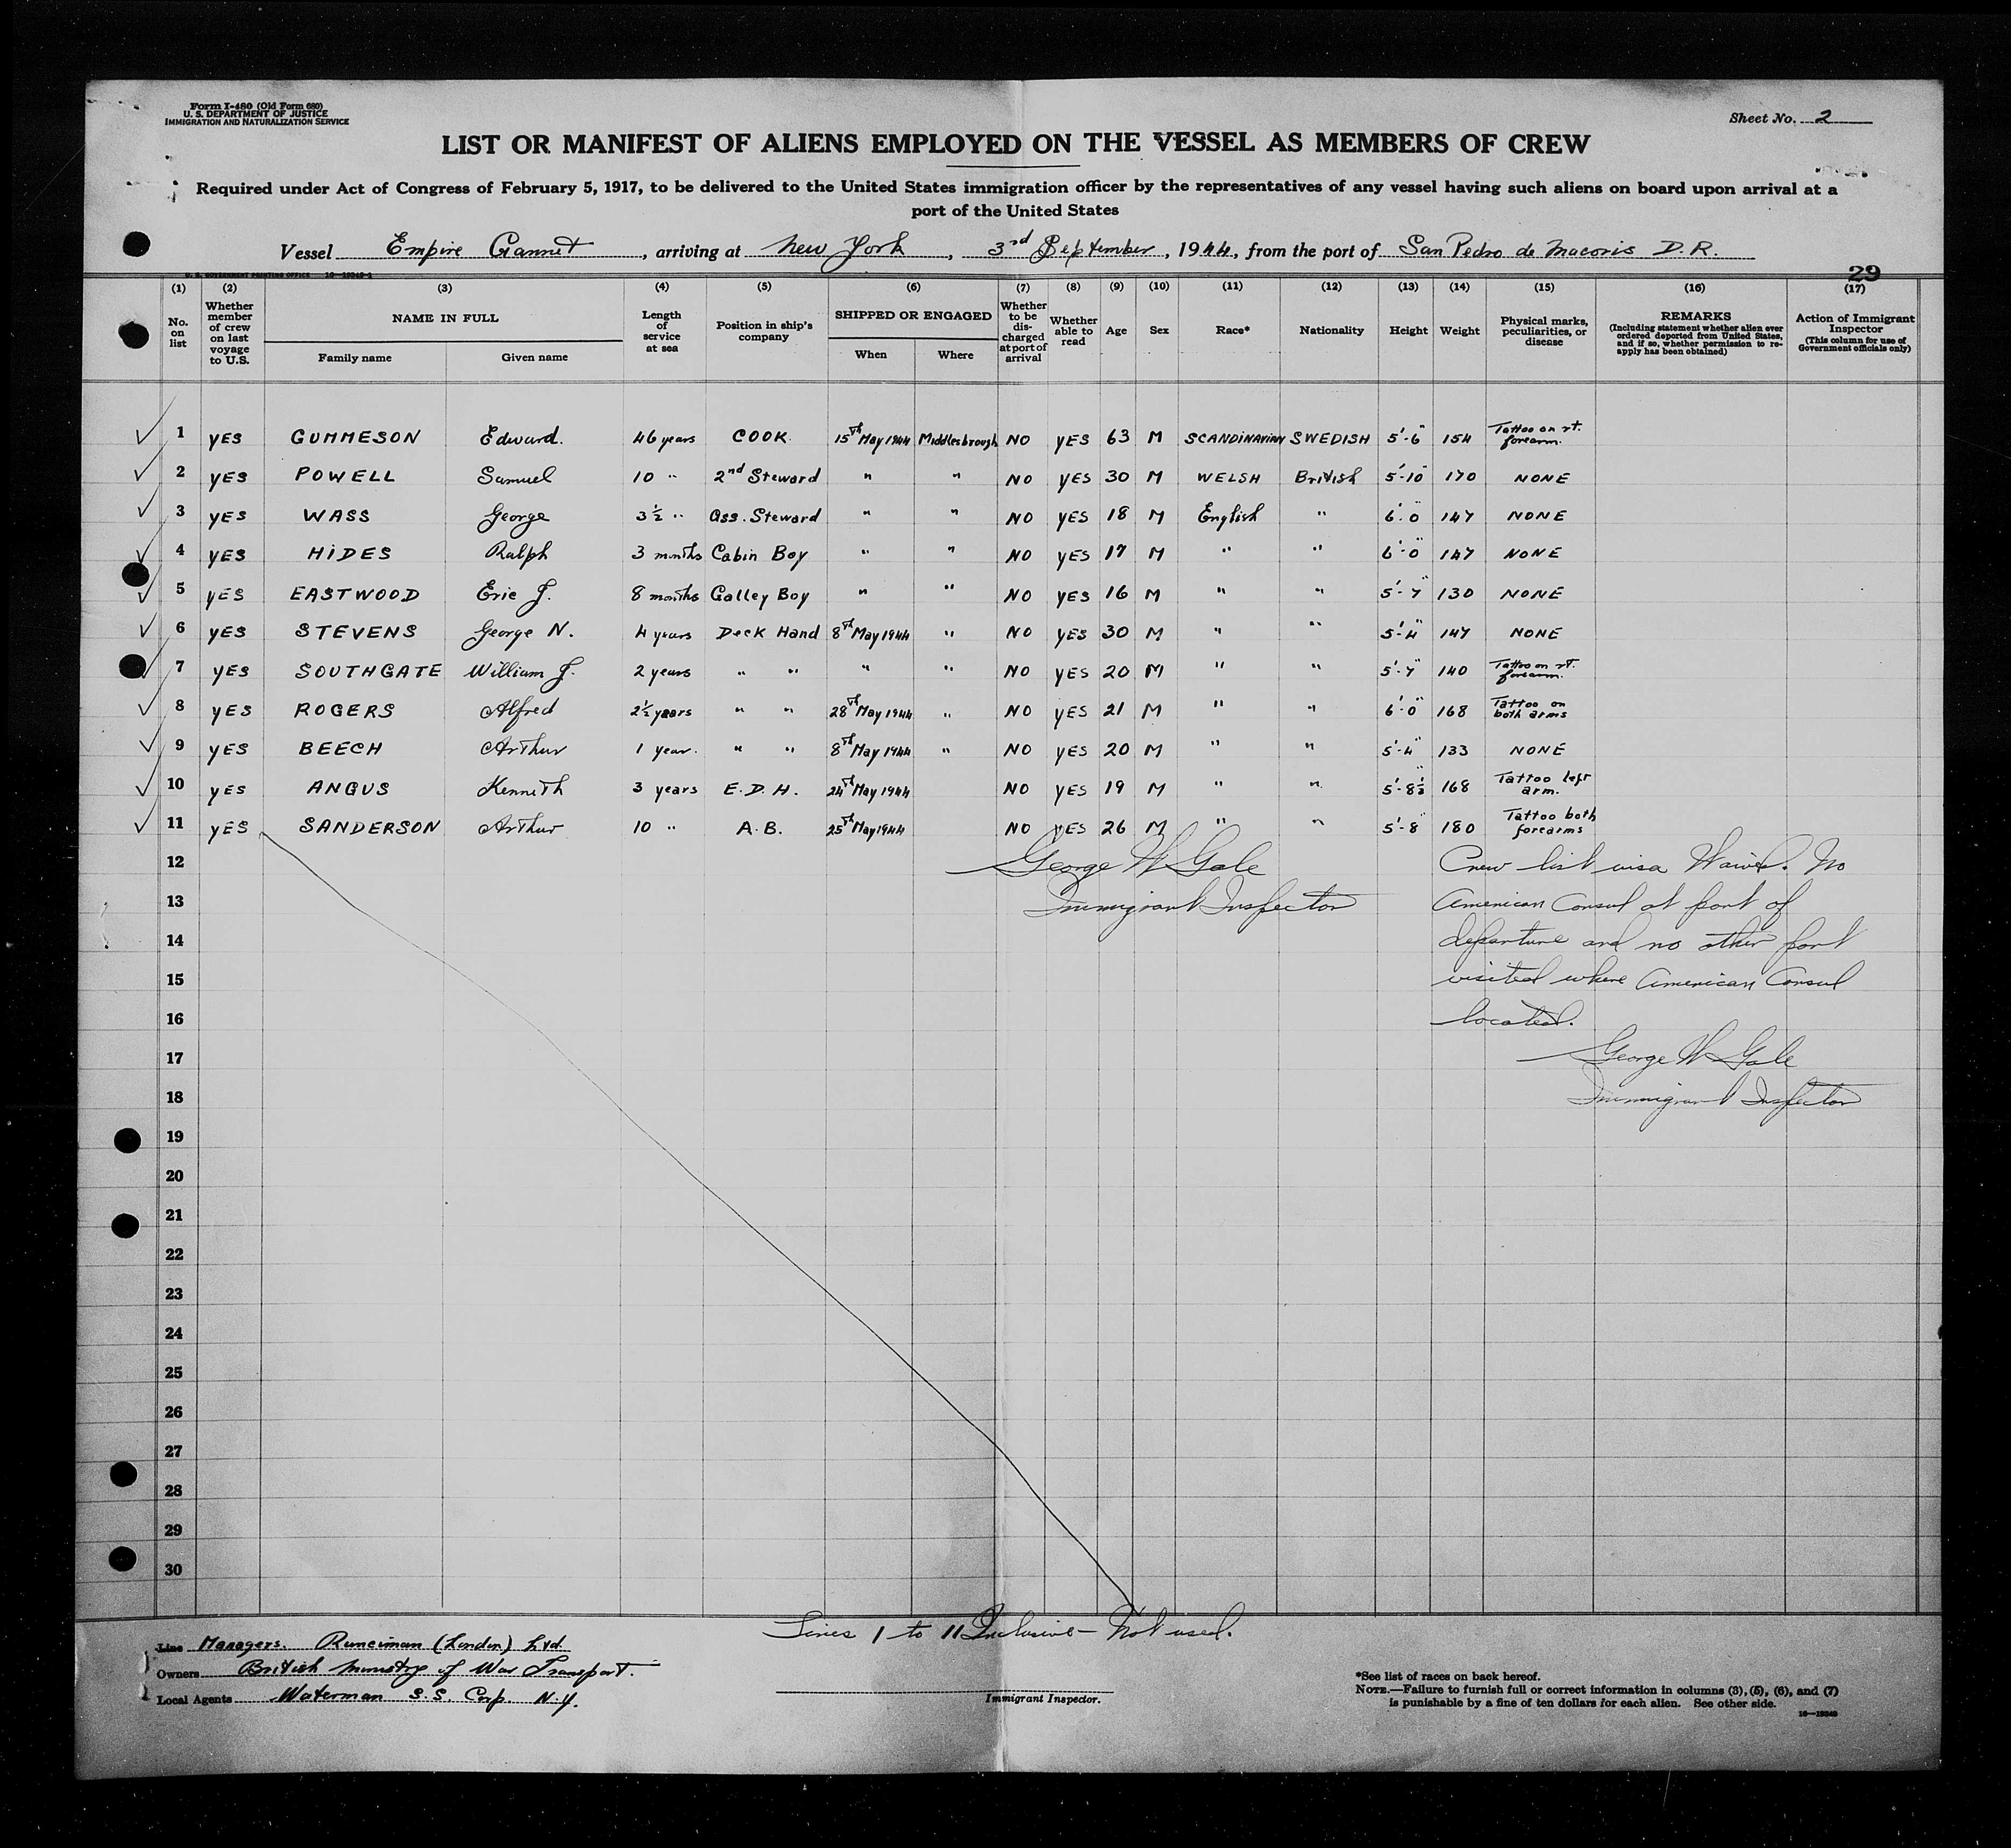 Form I-480 (Old Form 680)
U. S. DEPARTMENT OF JUSTICE
IMMIGRATION AND NATURALIZATION SERVICE
Sheet No. 2
LIST OR MANIFEST OF ALIENS EMPLOYED ON THE VESSEL AS MEMBERS OF CREW
Required under Act of Congress of February 5, 1917, to be delivered to the United States immigration officer by the representatives of any vessel having such aliens on board upon arrival at a
port of the United States
Vessel Empire Gannet, arriving at New York, 3rd September, 1944, from the port of San Pedro de Macoris D.R.
U. S. GOVERNMENT PRINTING OFFICE 16-19240-1
29
(1) (2) (3) (4) (5) (6) (7) (8) (9) (10) (11) (12) (13) (14) (15) (16) (17)
No. on list
Whether member of crew on last voyage to U.S.
NAME IN FULL
Family name
Given name
Length of service at sea
Position in ship's company
SHIPPED OR ENGAGED
When
Where
Whether to be discharged at port of arrival
Whether able to read
Age
Sex
Race*
Nationality
Height
Weight
Physical marks, peculiarities, or disease
REMARKS
(Including statement whether alien ever ordered deported from United States, and if so, whether permission to re-apply has been obtained)
Action of Immigrant Inspector
(This column for use of Government officials only)
1 YES GUMMESON Edward. 46 years COOK 15th May 1944 Middlesbrough NO YES 63 M SCANDINAVIAN SWEDISH 5'-6" 154 Tattoo on rt. forearm.
2 YES POWELL Samuel 10 " 2nd Steward " " NO YES 30 M WELSH British 5'-10" 170 NONE
3 YES WASS George 3½ " Ass. Steward " " NO YES 18 M English " 6'-0" 147 NONE
4 YES HIDES Ralph 3 months Cabin Boy " " NO YES 17 M " " 6'-0" 147 NONE
5 YES EASTWOOD Eric J. 8 months Galley Boy " " NO YES 16 M " " 5'-7" 130 NONE
6 YES STEVENS George N. 4 years Deck Hand 8th May 1944 " NO YES 30 M " " 5'-4" 147 NONE
7 YES SOUTHGATE William J. 2 years " " " " NO YES 20 M " " 5'-7" 140 Tattoo on rt. forearm.
8 YES ROGERS Alfred 2½ years " " 28th May 1944 " NO YES 21 M " " 6'-0" 168 Tattoo on both arms
9 YES BEECH Arthur 1 year. " " 8th May 1944 " NO YES 20 M " " 5'-4" 133 NONE
10 YES ANGUS Kenneth 3 years E.D.H. 24th May 1944 NO YES 19 M " " 5'-8½" 168 Tattoo left arm.
11 YES SANDERSON Arthur 10 " A.B. 25th May 1944 NO YES 26 M " " 5'-8" 180 Tattoo both forearms
12 George W Gale Crew list visa Waived. No
13 Immigrant Inspector American Consul at port of
14 departure and no other port
15 visited where American Consul
16 located.
17 George W Gale
18 Immigrant Inspector
19
20
21
22
23
24
25
26
27
28
29
30
Lines 1 to 11 Inclusive - Not used.
Line Managers. Runciman (London) Ltd.
Owners British Ministry of War Transport.
Local Agents Waterman S.S. Corp. N.Y.
Immigrant Inspector.
*See list of races on back hereof.
NOTE.—Failure to furnish full or correct information in columns (3), (5), (6), and (7)
is punishable by a fine of ten dollars for each alien. See other side.